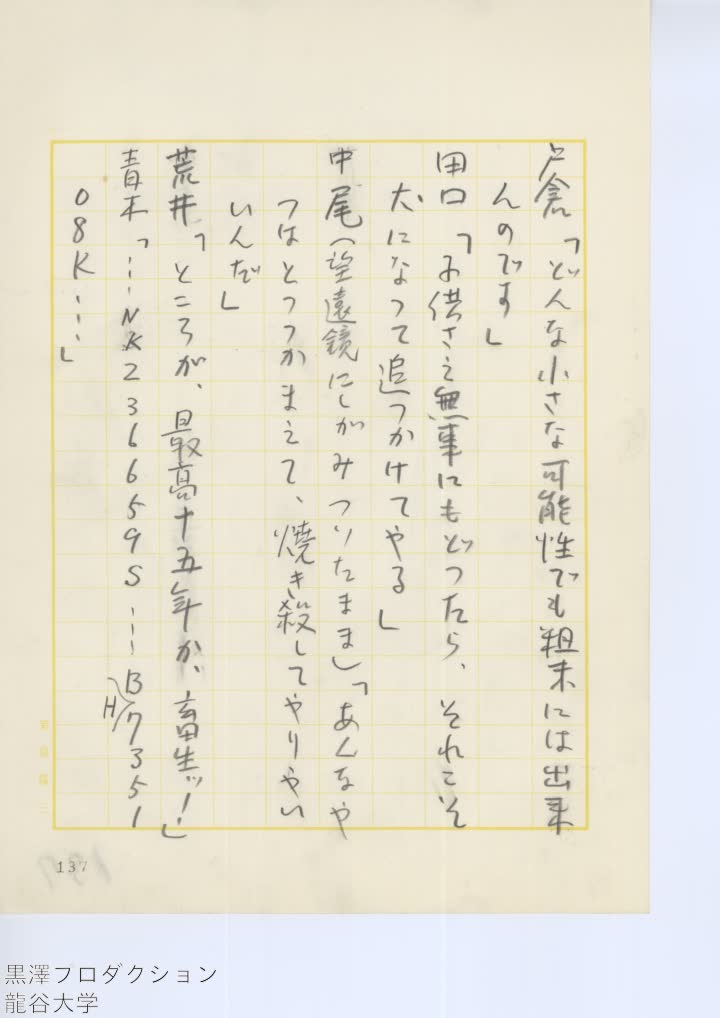 戸倉「どんな小さな可能性でも粗末には出来
んのです」
田口「子供さえ無事にもどつたら、それこそ
犬になつて追つかけてやる」
中尾（望遠鏡にしがみついたまま）「あんなや
つはとつつかまえて、焼き殺してやりやい
いんだ」
荒井「ところが、最高十五年か、畜生ッ！」
青木「…NK236659S…B7351
H
08K…」
137
黒澤プロダクション
龍谷大学